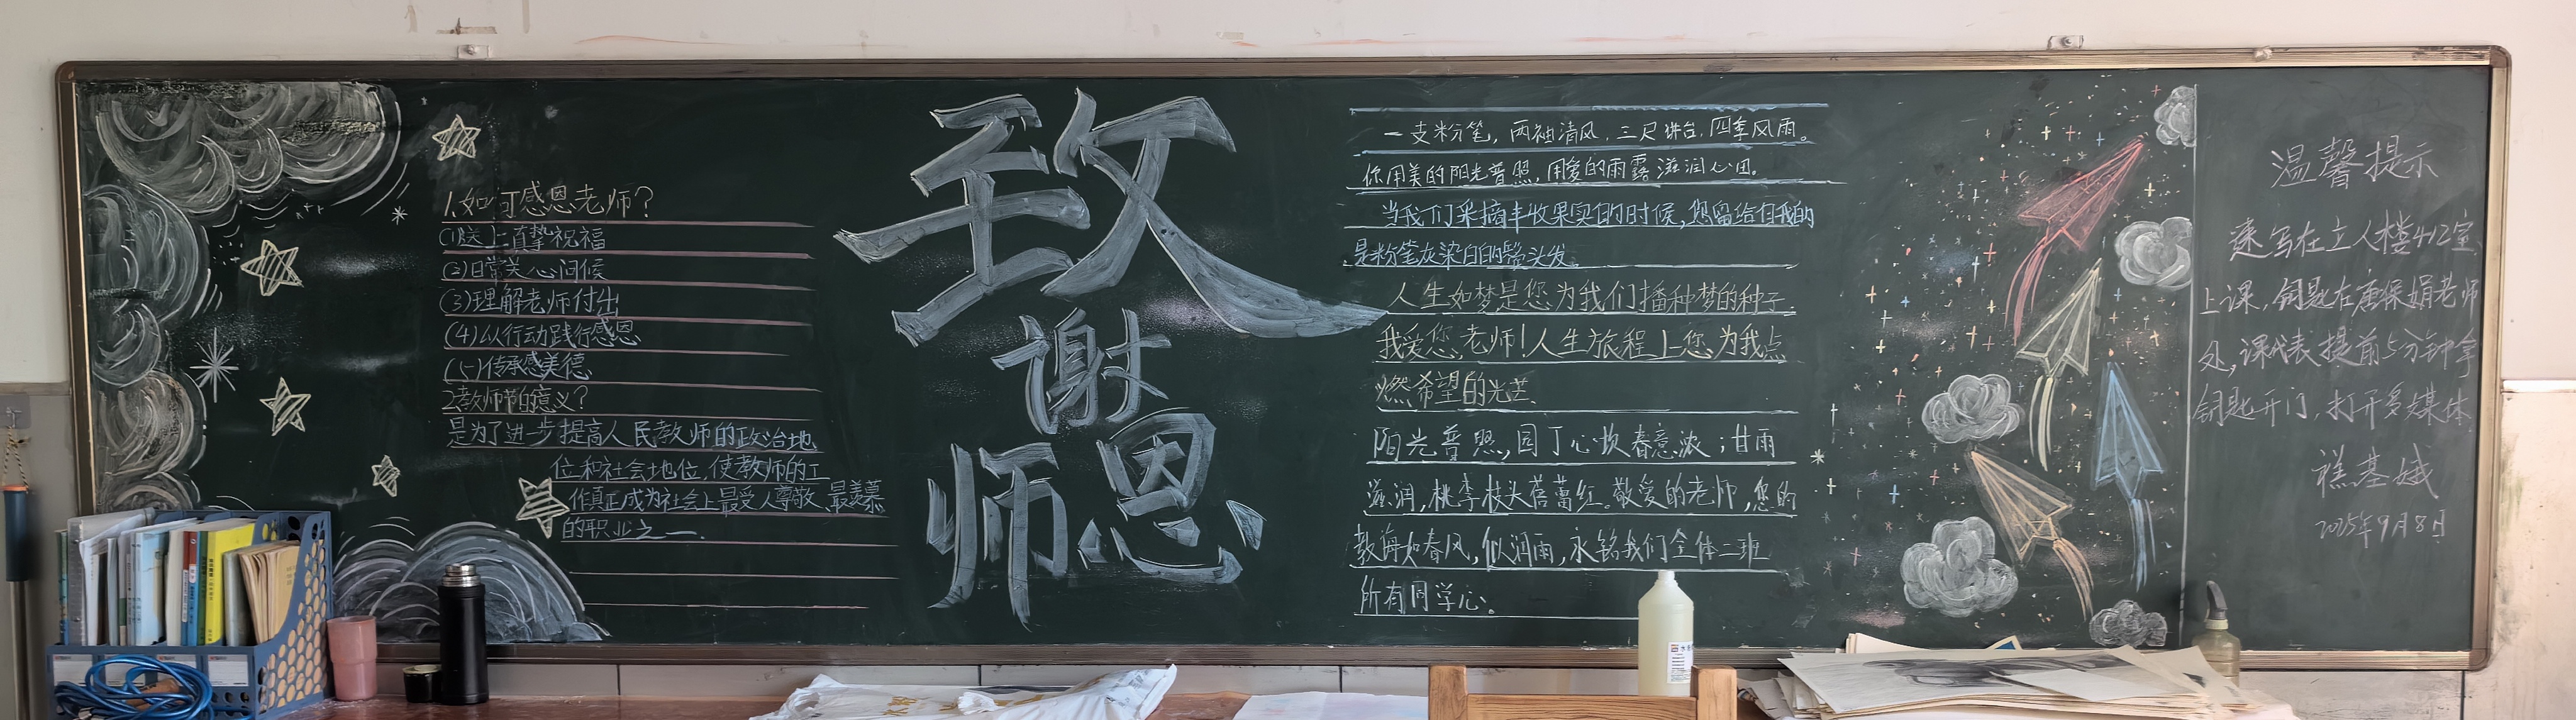 1.如何感恩老师？
(1)送上真挚祝福
(2)日常关心问候
(3)理解老师付出
(4)以行动践行感恩
(5)传承感美德
2.教师节的意义？
是为了进一步提高人民教师的政治地
位和社会地位,使教师的工
作真正成为社会上最受人尊敬、最羡慕
的职业之一.
致
谢
师恩
一支粉笔，两袖清风，三尺讲台，四季风雨。
你用美的阳光普照，用爱的雨露滋润心田。
当我们采摘丰收果实的时候,您留给自我的
是粉笔灰染白的鬓头发
人生如梦是您为我们播种梦的种子.
我爱您,老师!人生旅程上您为我点
燃希望的光芒.
阳光普照,园丁心坎春意浓；甘雨
滋润,桃李枝头蓓蕾红.敬爱的老师,您的
教诲如春风,似润雨,永铭我们全体二班
所有同学心.
温馨提示
速写在立人楼412室
上课，钥匙在唐保娟老师
处,课代表提前5分钟拿
钥匙开门，打开多媒体
禚基娥
2025年9月8日